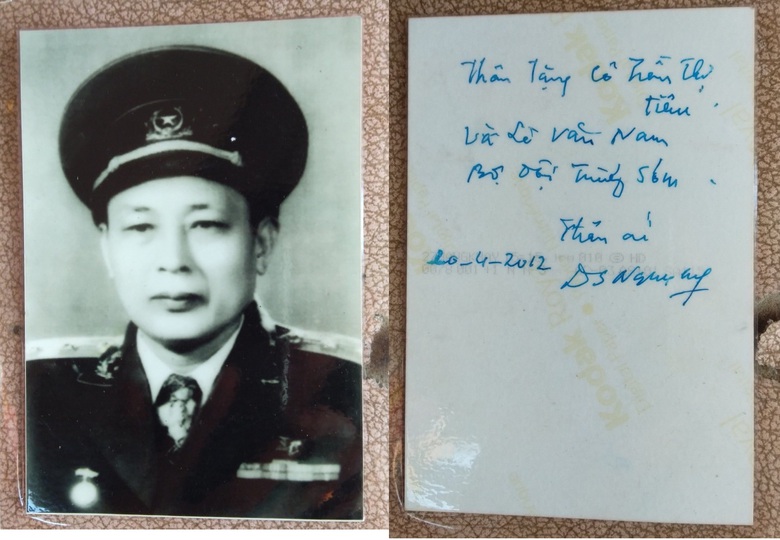 Thân Tặng Cô Trần Thị
Tiến
Và Lê Văn Nam
Bộ Đội Trường Sơn
Thân ái
20-4-2012
DS Nguyên
Kodak
Kodak
Kodak